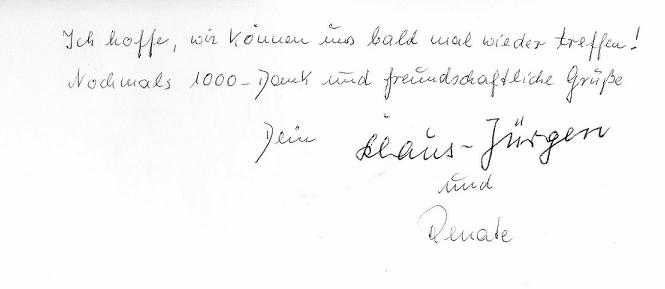 Ich hoffe, wir können uns bald mal wieder treffen!
Nochmals 1000-Dank und freundschaftliche Grüße
Dein Klaus-Jürgen
und
Renate